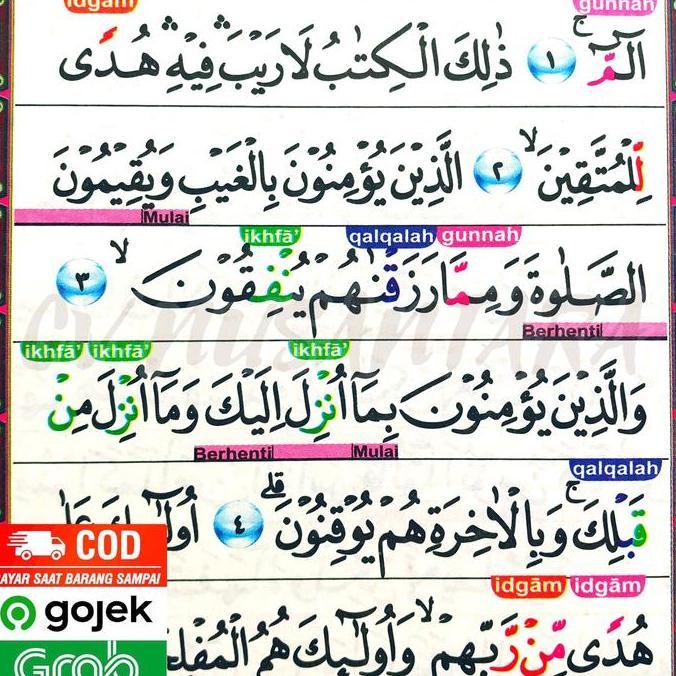 idgam gunnah
الۤمّۤ ۚ ١ ذٰلِكَ الْكِتٰبُ لَا رَيْبَ ۛ فِيْهِ ۛ هُدًى
لِّلْمُتَّقِيْنَ ۙ ٢ الَّذِيْنَ يُؤْمِنُوْنَ بِالْغَيْبِ وَيُقِيْمُوْنَ
Mulai
ikhfā’ qalqalah gunnah
الصَّلٰوةَ وَمِمَّا رَزَقْنٰهُمْ يُنْفِقُوْنَ ۙ ٣
Berhenti
ikhfā’ ikhfā’ ikhfā’
وَالَّذِيْنَ يُؤْمِنُوْنَ بِمَآ اُنْزِلَ اِلَيْكَ وَمَآ اُنْزِلَ مِنْ
Berhenti Mulai
qalqalah
قَبْلِكَ ۚ وَبِالْاٰخِرَةِ هُمْ يُوْقِنُوْنَ ۗ ٤ اُولٰۤىِٕكَ
COD
BAYAR SAAT BARANG SAMPAI
idgām idgām
gojek
هُدًى مِّنْ رَّبِّهِمْ ۙ وَاُولٰۤىِٕكَ هُمُ
Grab
CV NUSANTARA